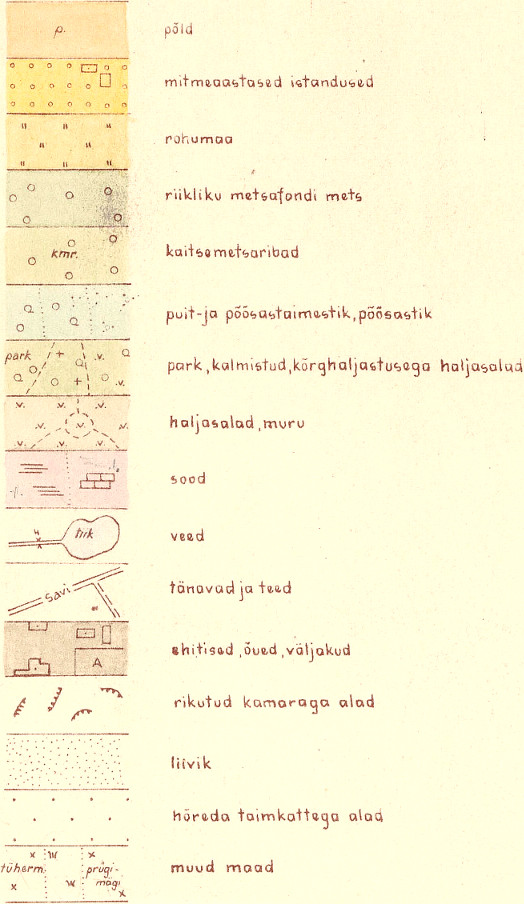 p. põld
mitmeaastased istandused
rohumaa
riikliku metsafondi mets
kmr. kaitsemetsaribad
puit-ja põõsastaimestik, põõsastik
park park, kalmistud, kõrghaljastusega haljasalad
haljasalad, muru
sood
tiik veed
Savi tänavad ja teed
A ehitised, õued, väljakud
rikutud kamaraga alad
liivik
hõreda taimkattega alad
tüherm. prügi- muud maad
mägi